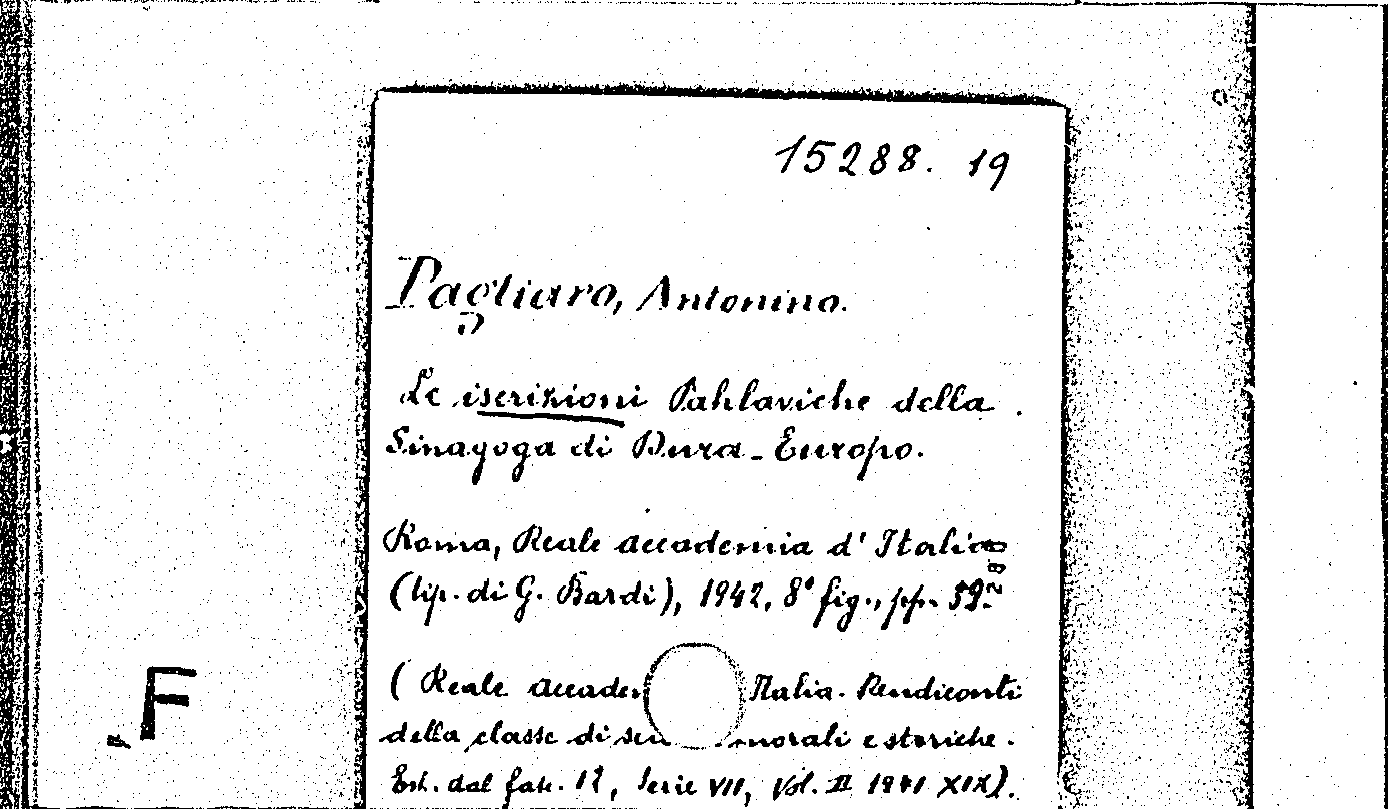 15288. 19
Pagliaro, Antonino.
Le iscrizioni Pahlaviche della
Sinagoga di Dura-Europo.
Roma, Reale accademia d'Italia
(tip. di G. Bardi), 1942, 8° fig., pp.
(Reale Italia. Rendiconti
della classe di morali e storiche.
Est. dal fasc. 12, Serie VII, Vol. II 1941 XIX).
F